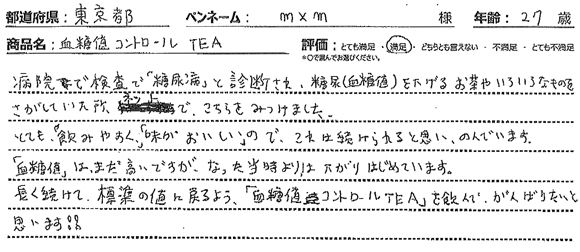 都道府県：東京都 ペンネーム：m×m 様 年齢：27歳
商品名：血糖値コントロールTEA 評価：とても満足・満足・どちらとも言えない・不満足・とても不満足
*○で選んでお選びください。
病院で検査で「糖尿病」と診断され、糖尿(血糖値)を下げるお茶やいろいろなものを
さがしていた所、ネットで、こちらをみつけました。
とても、「飲みやすく」、「味がおいしい」ので、これは続けられると思い、のんでいます。
「血糖値」は、まだ高いですが、なった当時よりは下がりはじめています。
長く続けて、標準の値に戻るよう、「血糖値コントロールTEA」を飲んで、がんばりたいと
思います!!